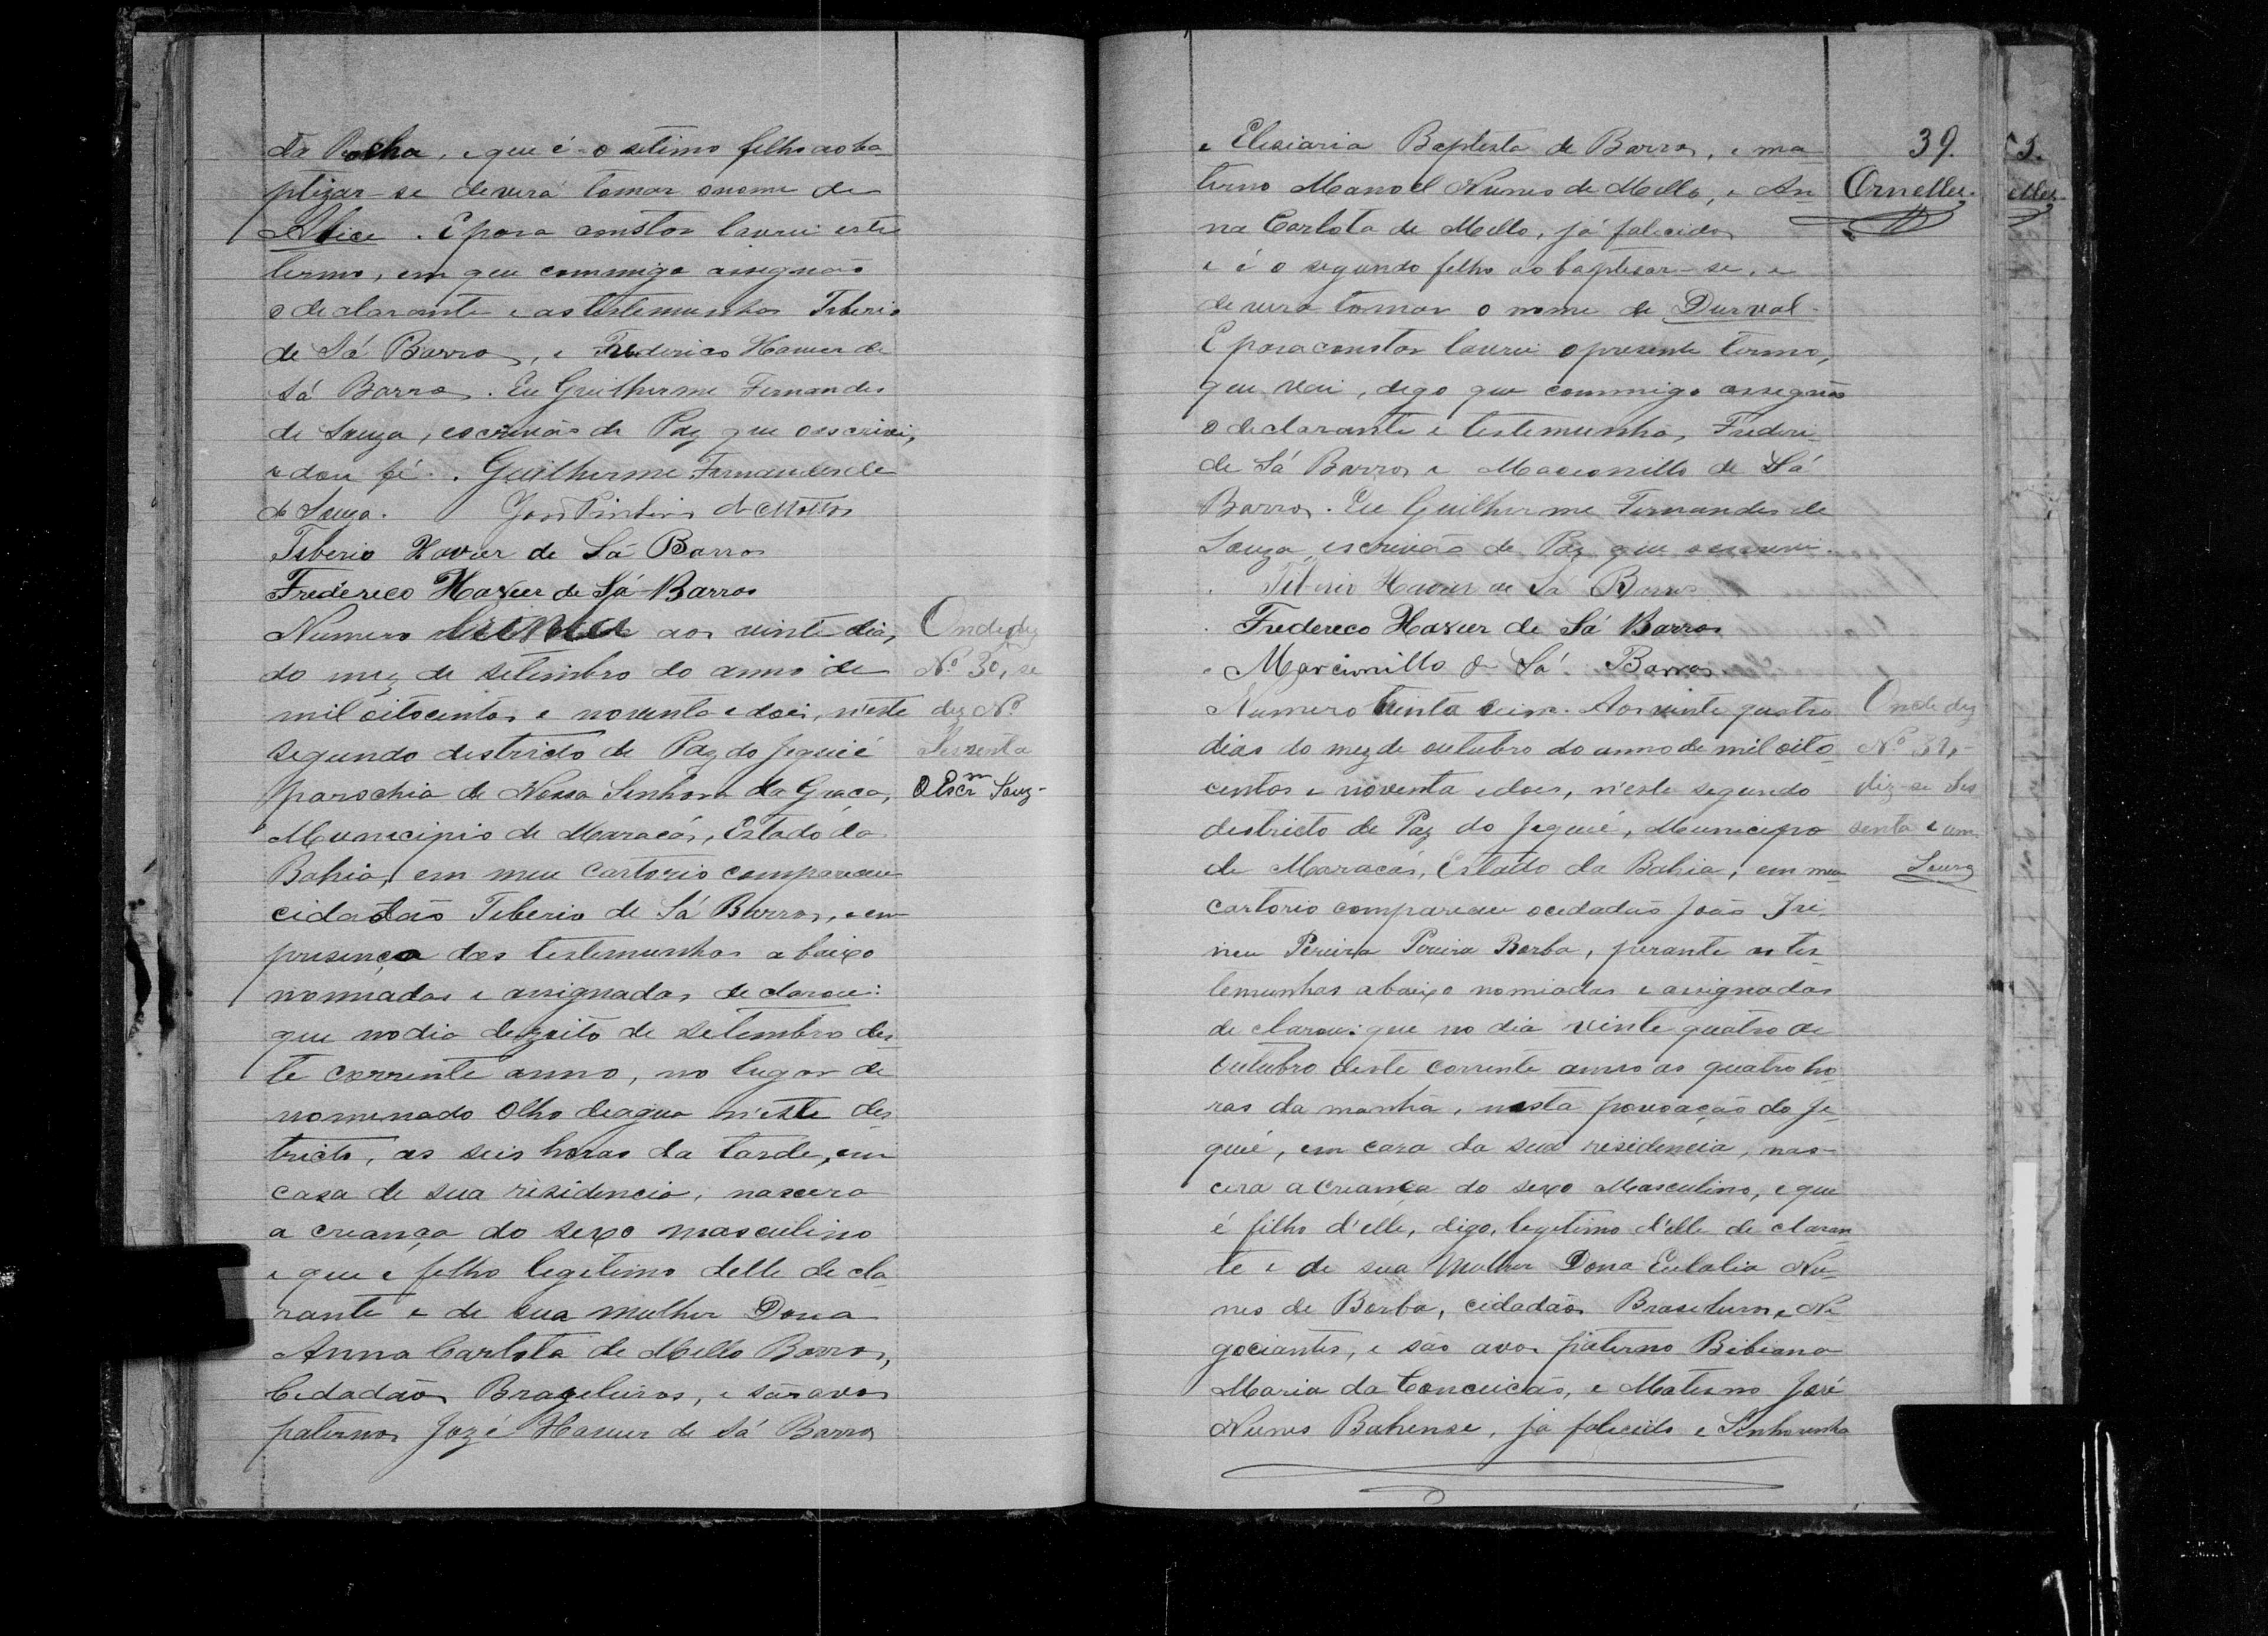 da Rocha, e que é o setimo filho ao ba
ptizar-se deverá tomar o nome de
Alice. E para constar lavrei este
termo, em que commigo assignão
o declarante e as testemunhas Tiberio
de Sá Barros, e Frederico Xavier de
Sá Barros. Eu Guilherme Fernandes
de Souza, escrivão de Paz que o escrivi,
e dou fé. Guilherme Fernandes de
de Souza. de Mattos
Tiberio Xavier de Sá Barros
Frederico Xavier de Sá Barros
Numero trinta aos vinte dias,
do mez de setembro do anno de
mil oitocentos e noventa e dois, n'este
segundo destricto de Paz do Jequié
parochia de Nossa Senhora da Graça,
Municipio de Maracás, Estado da
Bahia, em meu Cartorio compareceu
cidadão Tiberio de Sá Barros, e em
presença das testemunhas abaixo
nomiadas e assignadas, declarou:
que no dia dezoito de setembro des
te corrente anno, no lugar de
nominado Olho deagua n'este des
tricto, as seis horas da tarde, em
casa de sua residencia, nascera
a creança do sexo masculino
e que e filho legitimo delle decla
rante e de sua mulher Dona
Anna Carlota de Mello Barros,
Cidadãos Brazileiros, e são avos
paternos Jozé Xavier de Sá Barros
Onde diz
Nº 30, se
diz Nº
Sessenta
O Escm Souz-
e Elesiaria Baptista de Barros, e ma
terno Manoel Nunes de Mello, e An
na Carlota de Mello, já falecidos
e é o segundo filho ao baptisar-se, e
devera tomar o nome de Durval.
E para constar lavrei o presente termo,
que vai, digo que commigo assignão
o declarante e testemunhas, Frederi
de Sá Barros e Marcionillo de Sá
Barros. Eu Guilherme Fernandes de
Souza, escrivão de Paz que o escrevi.
Tiberio Xavier de Sá Barros
Frederico Xavier de Sá Barros
Marcionillo de Sá Barros
Numero trinta e um. Aos vinte quatro
dias do mez de outubro do anno de mil oito
centos e noventa e dois, n'este segundo
destricto de Paz do Jequié, Municipio
de Maracás, Estado da Bahia, em meu
cartorio compareceu o cidadão João Iri
neu Pereira Pereira Borba, perante as tes
temunhas abaixo nomiadas e assignadas
declarou: que no dia vinte quatro de
outubro deste corrente anno as quatro ho
ras da manhã, nesta povoação do Je
quié, em casa da sua residencia, nas-
cera a creança do sexo Masculino, e que
é filho d'elle, digo, legitimo d'elle declaran
te e de sua Mulher Dona Eulalia Nu
nes de Borba, cidadãos Brasileiros, Ne
gociantes, e são avos paterno Bibiana
Maria da Conceicão, e Materno José
Nunes Bahense, já falecido e Senhorinha
39.
Ornellas.
Onde diz
Nº 31,
diz-se Ses
senta e um.
Souza